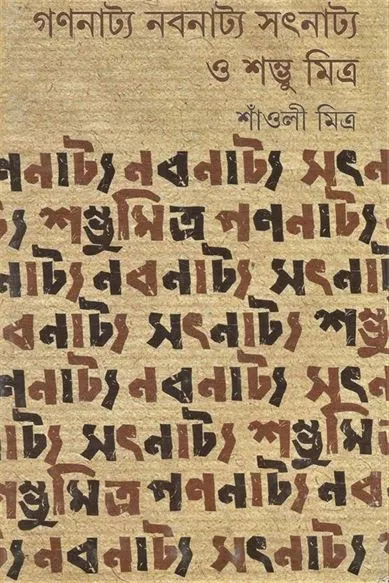 গণনাট্য নবনাট্য সৎনাট্য
ও শম্ভু মিত্র
শাঁওলী মিত্র
ণনাট্য নবনাট্য সৎন
শম্ভুমিত্র গণনাট্য
নাট্য নবনাট্য সৎনা
বনাট্য সৎনাট্য শম্ভু
ণনাট্য নবনাট্য সৎন
নাট্য সৎনাট্য শম্ভুমি
শম্ভুমিত্র গণনাট্য নব
নবনাট্য সৎনাট্য